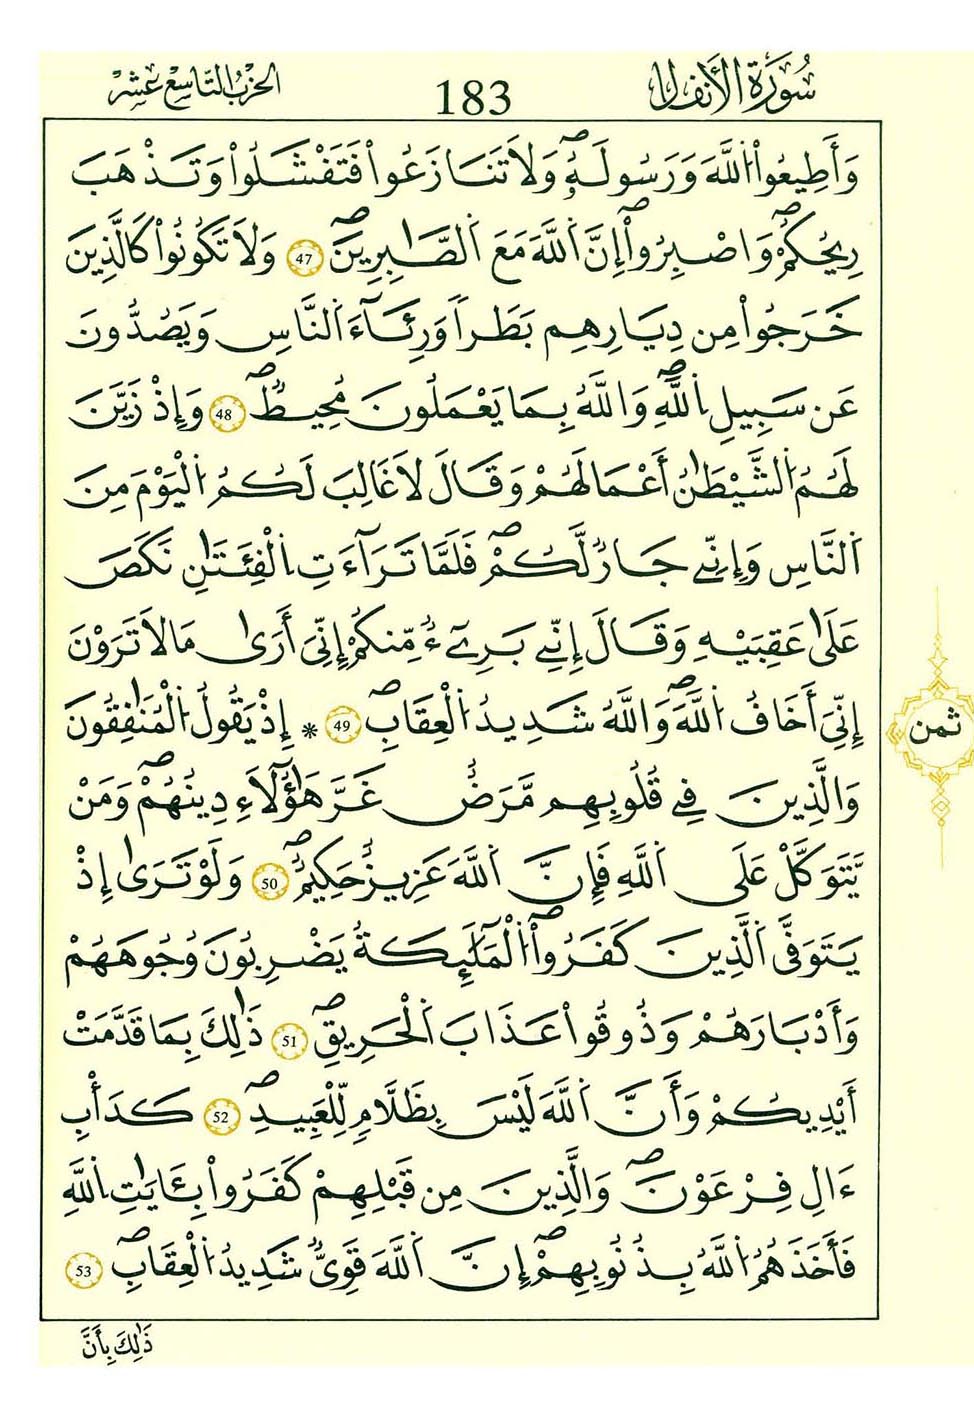 سُورَةُ الأَنفَالِ 183 الحِزْبُ التَّاسِعَ عَشَرَ
وَأَطِيعُواْ اللَّهَ وَرَسُولَهُۥۖ وَلاَ تَنَازَعُواْ فَتَفْشَلُواْ وَتَذْهَبَ
رِيحُكُمْۖ وَاصْبِرُوٓاْۖ إِنَّ اَللَّهَ مَعَ اَلصَّٰبِرِينَۖ 47 وَلاَ تَكُونُواْ كَالَّذِينَ
خَرَجُواْ مِن دِيَٰرِهِم بَطَراً وَرِئَآءَ اَلنَّاسِ وَيَصُدُّونَ
عَن سَبِيلِ اِللَّهِۖ وَاللَّهُ بِمَا يَعْمَلُونَ مُحِيطٌۖ 48 وَإِذْ زَيَّنَ
لَهُمُ اُلشَّيْطَٰنُ أَعْمَٰلَهُمْ وَقَالَ لاَ غَالِبَ لَكُمُ اُلْيَوْمَ مِنَ
اَلنَّاسِ وَإِنِّے جَارٌ لَّكُمْۖ فَلَمَّا تَرَآءَتِ اِلْفِئَتَٰنِ نَكَصَ
عَلَىٰ عَقِبَيْهِ وَقَالَ إِنِّے بَرِےٓءٌ مِّنكُمْ إِنِّىَ أَرَىٰ مَا لاَ تَرَوْنَ
إِنِّىَ أَخَافُ اُللَّهَۖ وَاللَّهُ شَدِيدُ اُلْعِقَابِۖ 49 * إِذْ يَقُولُ اُلْمُنَٰفِقُونَ
وَالَّذِينَ فِے قُلُوبِهِم مَّرَضٌ غَرَّ هَٰٓؤُلَآءِ دِينُهُمْۖ وَمَنْ
يَّتَوَكَّلْ عَلَى اَللَّهِ فَإِنَّ اَللَّهَ عَزِيزٌ حَكِيمٌۖ 50 وَلَوْ تَرَىٰ إِذْ
يَتَوَفَّى اَلَّذِينَ كَفَرُواْۖ اُلْمَلَٰٓئِكَةُ يَضْرِبُونَ وُجُوهَهُمْ
وَأَدْبَٰرَهُمْ وَذُوقُواْ عَذَابَ اَلْحَرِيقِۖ 51 ذَٰلِكَ بِمَا قَدَّمَتْ
أَيْدِيكُمْ وَأَنَّ اَللَّهَ لَيْسَ بِظَلَّٰمٍ لِّلْعَبِيدِۖ 52 كَدَأْبِ
ءَالِ فِرْعَوْنَۖ وَالَّذِينَ مِن قَبْلِهِمْ كَفَرُواْ بِـَٔايَٰتِ اِللَّهِ
فَأَخَذَهُمُ اُللَّهُ بِذُنُوبِهِمْۖ إِنَّ اَللَّهَ قَوِىٌّ شَدِيدُ اُلْعِقَابِۖ 53
ذَٰلِكَ بِأَنَّ
ثمن